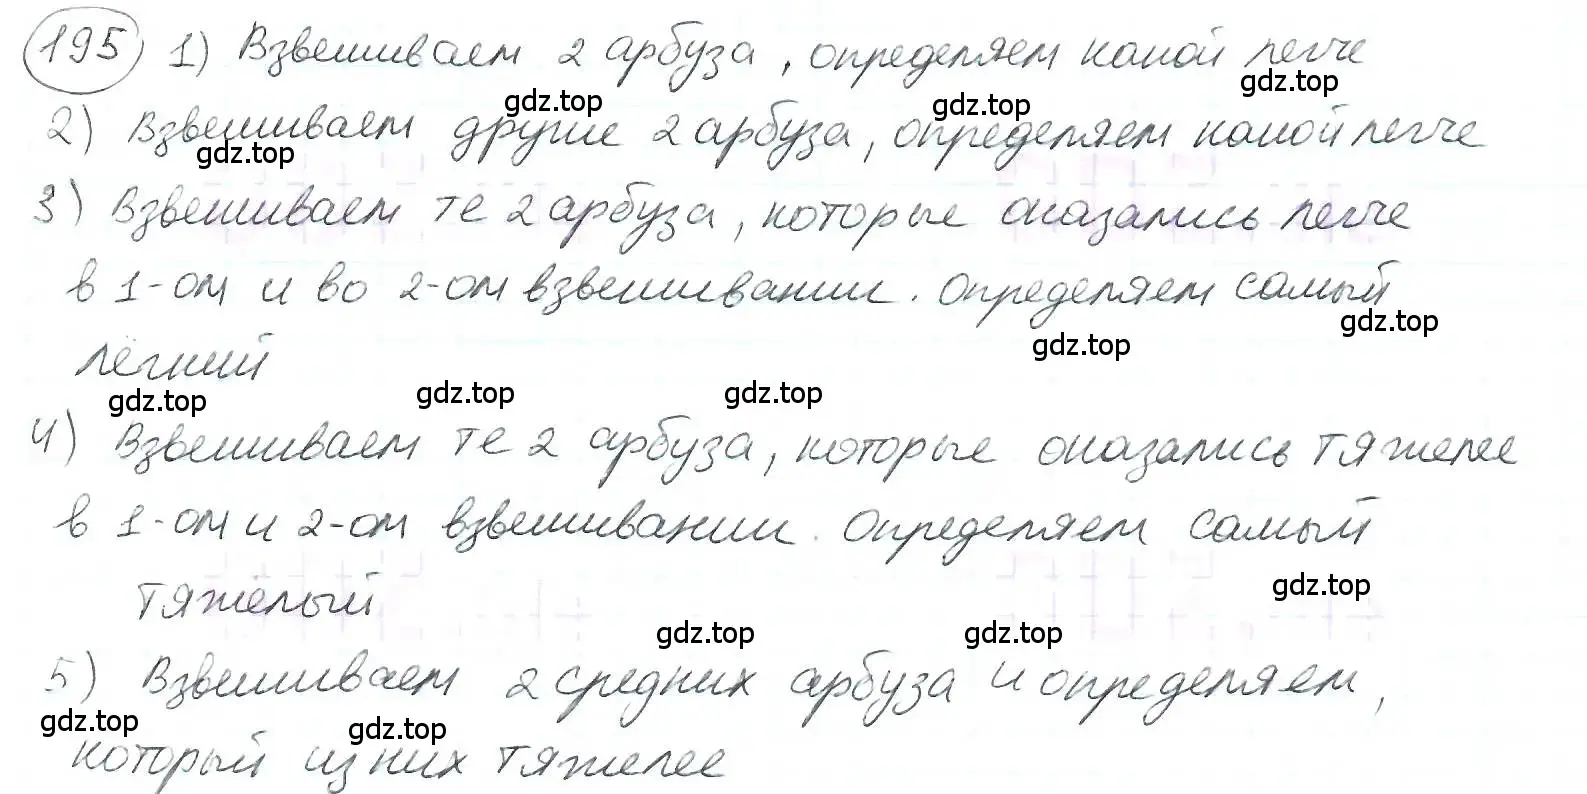 195 1) Взвешиваем 2 арбуза, определяем какой легче
gdz.top gdz.top gdz.top
2) Взвешиваем другие 2 арбуза, определяем какой легче
gdz.top
3) Взвешиваем те 2 арбуза, которые оказались легче
в 1-ом и во 2-ом взвешивании. Определяем самый
gdz.top gdz.top
лёгкий
gdz.top gdz.top gdz.top
4) Взвешиваем те 2 арбуза, которые оказались тяжелее
в 1-ом и 2-ом взвешивании. Определяем самый
gdz.top
тяжёлый
gdz.top gdz.top
5) Взвешиваем 2 средних арбуза и определяем,
gdz.top gdz.top
который из них тяжелее